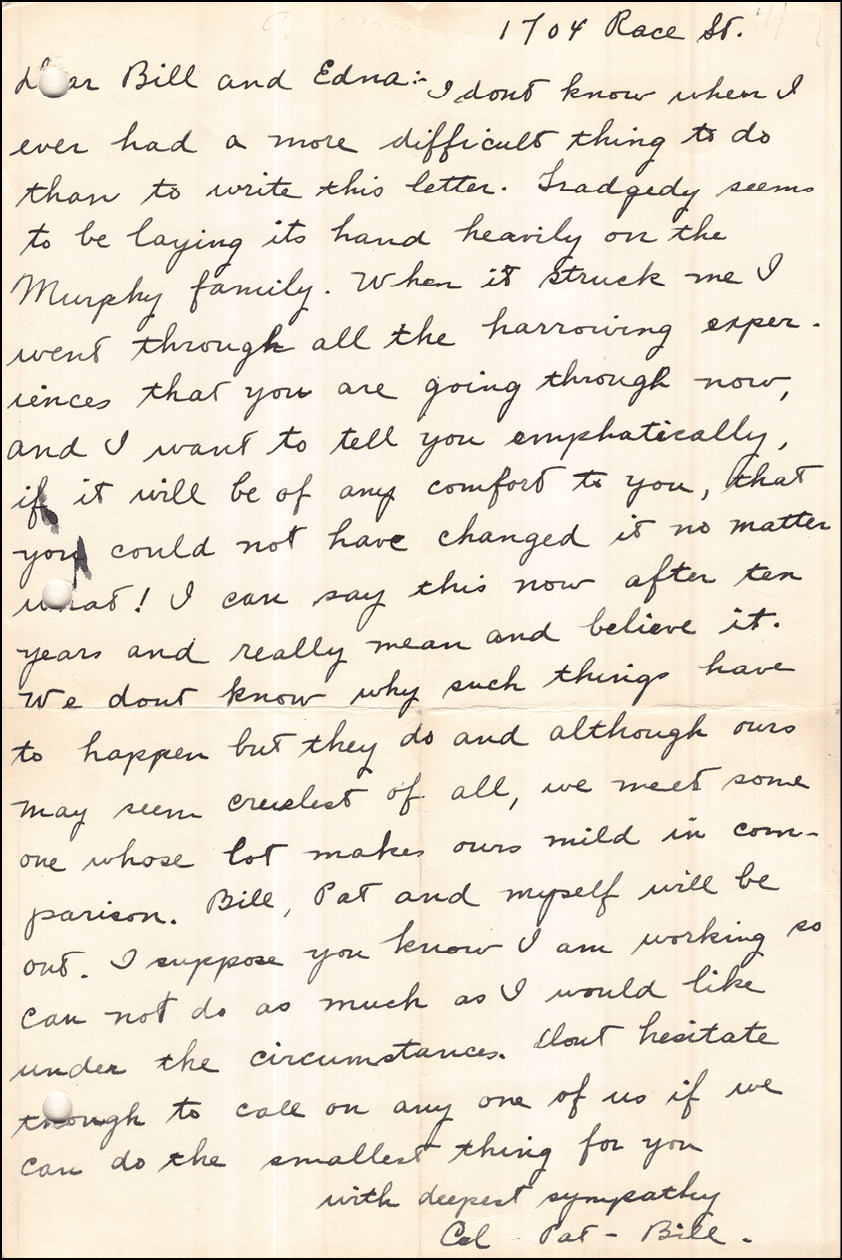 1704 Race St.
Dear Bill and Edna:- I dont know when I
ever had a more difficult thing to do
than to write this letter. Tradgedy seems
to be laying its hand heavily on the
Murphy family. When it struck me I
went through all the harrowing exper-
iences that you are going through now,
and I want to tell you emphatically,
if it will be of any comfort to you, that
you could not have changed it no matter
what! I can say this now after ten
years and really mean and believe it.
We dont know why such things have
to happen but they do and although ours
may seem cruelest of all, we meet some
one whose lot makes ours mild in com-
parison. Bill, Pat and myself will be
out. I suppose you know I am working so
can not do as much as I would like
under the circumstances. Dont hesitate
though to call on any one of us if we
can do the smallest thing for you
with deepest sympathy
Cel Pat - Bill.